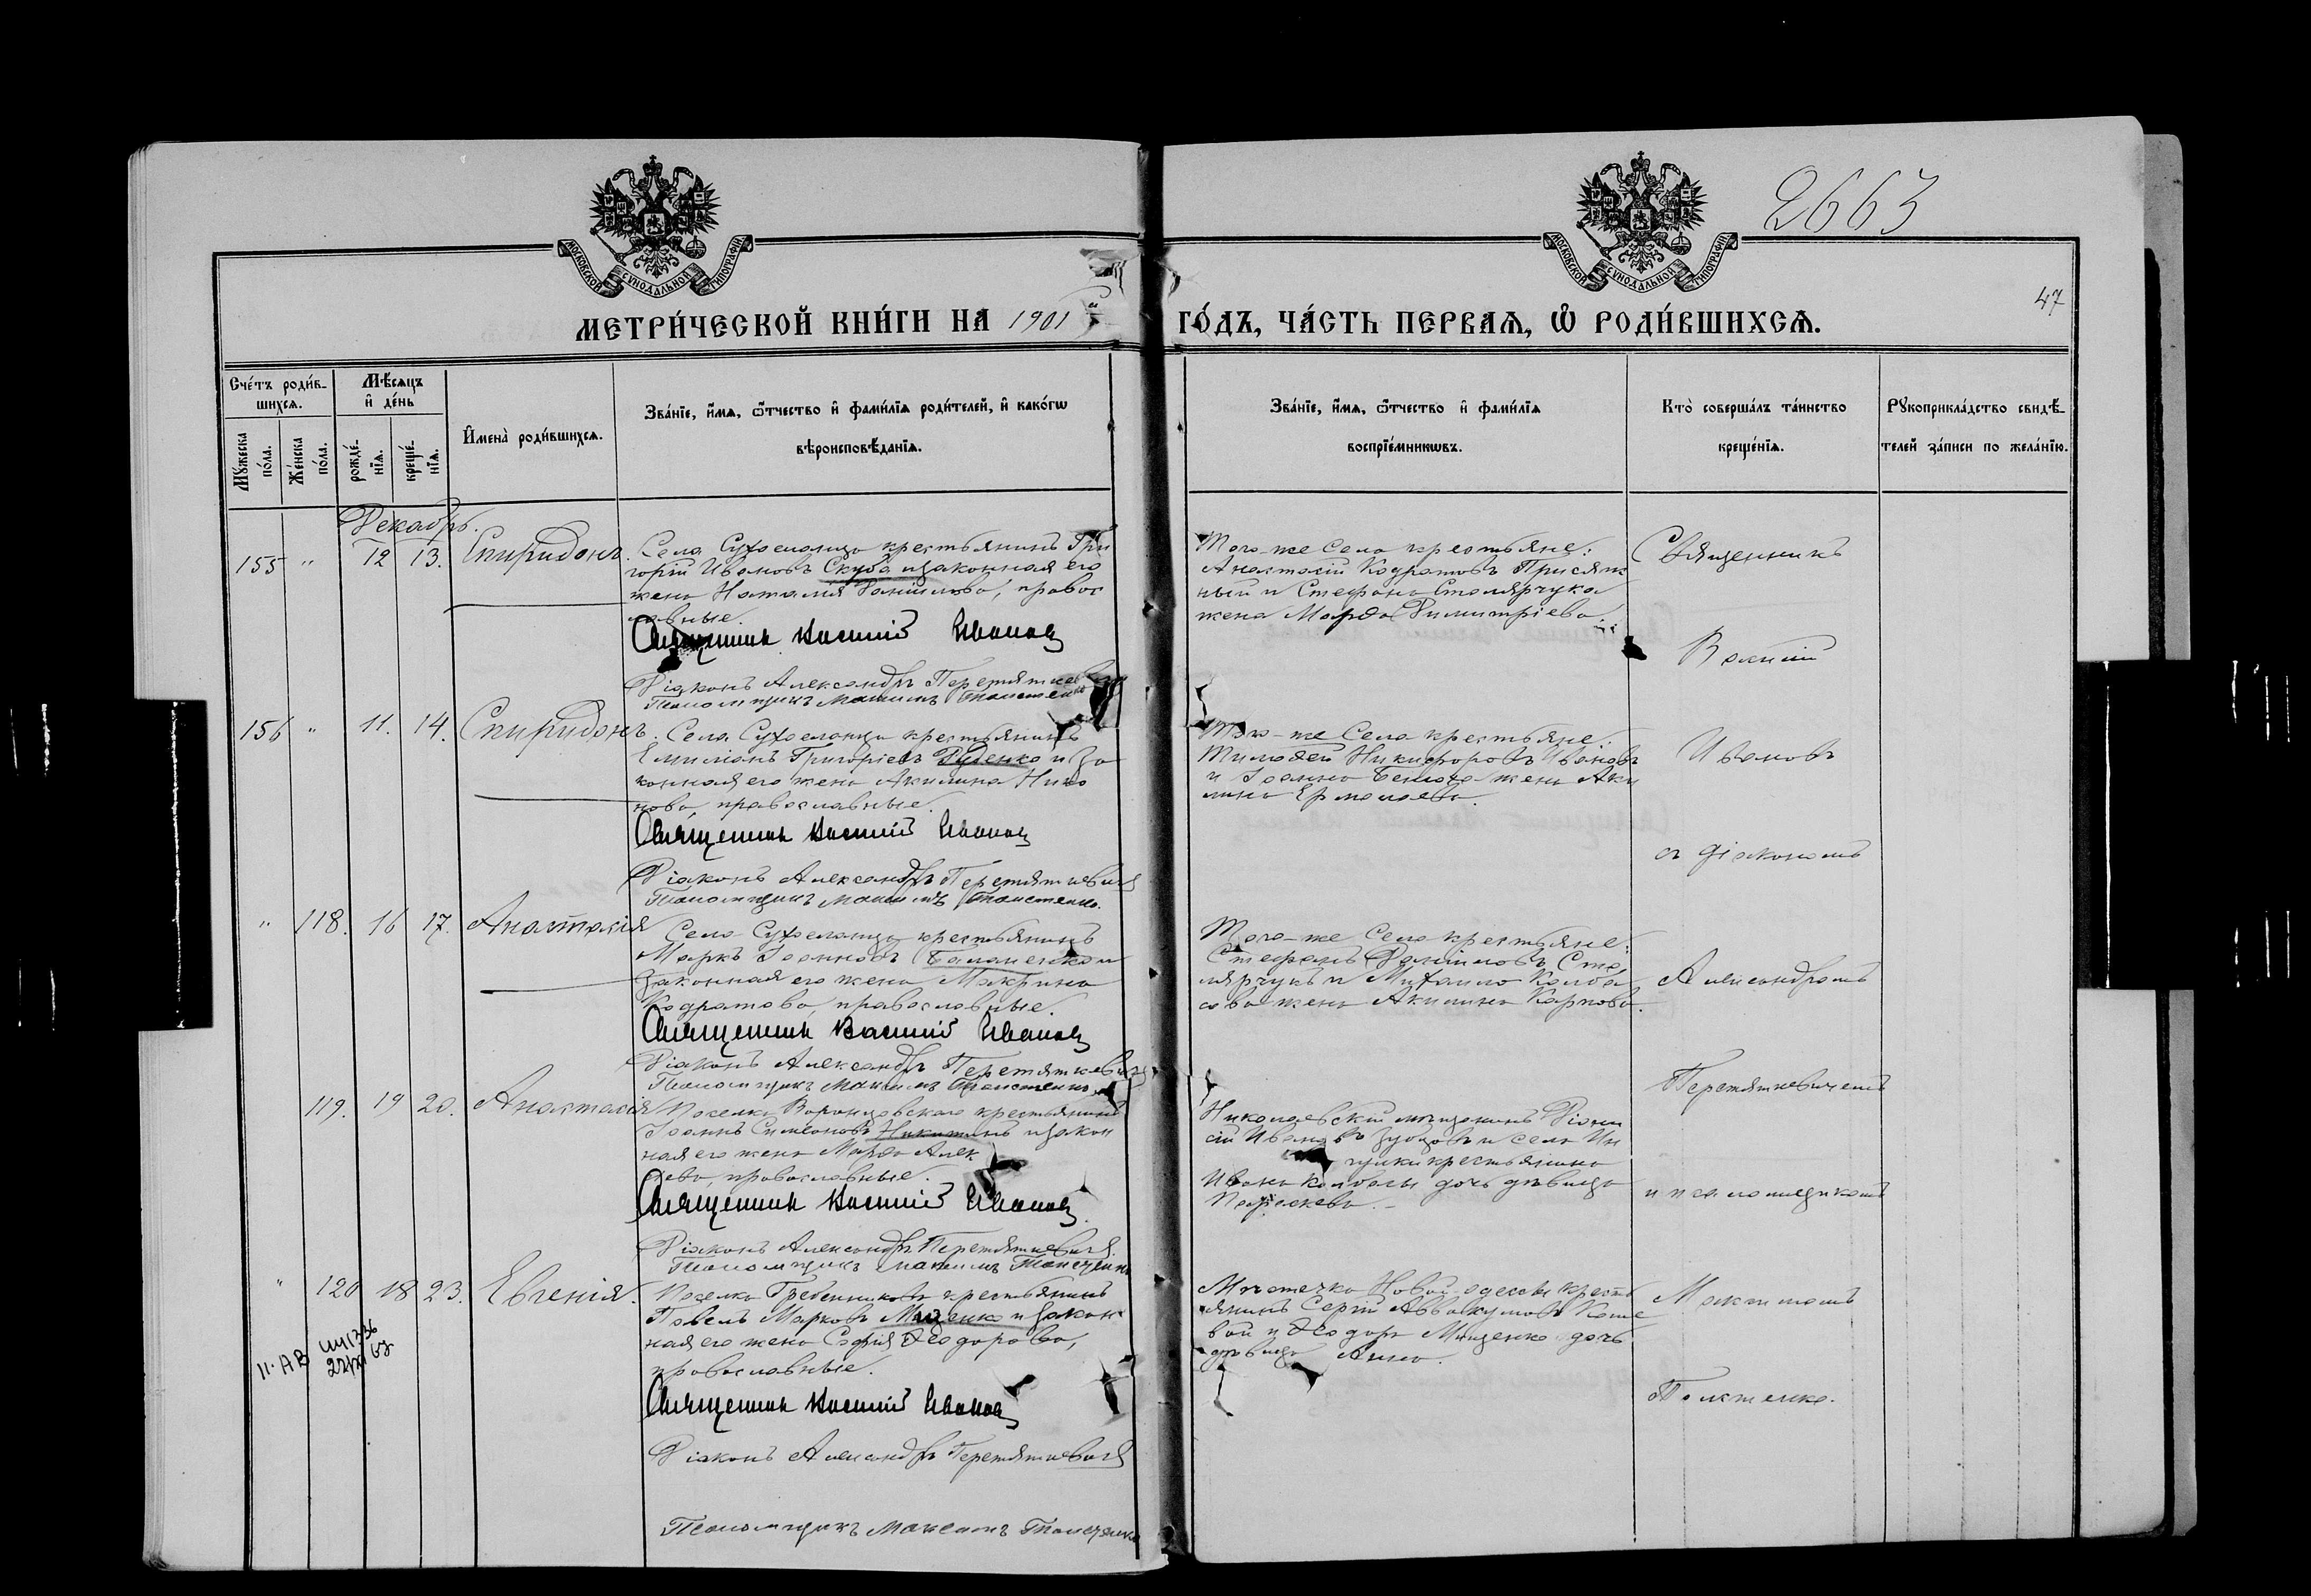 МОСКОВСКОЙ СУНОДАЛЬНОЙ ТИПОГРАФІИ
МОСКОВСКОЙ СУНОДАЛЬНОЙ ТИПОГРАФІИ
2663
47
МЕТРИ́ЧЕСКОЙ КНИ́ГИ НА 1901 й
ГО́ДЪ, ЧА́СТЬ ПЕ́РВАѦ, Ѡ҆ РОДИ́ВШИХСѦ.
Сче́тъ роди́в-
шихсѧ.
Мѣ́сѧцъ
и҆ де́нь
Мꙋ́жеска
по́ла.
Же́нска
по́ла.
рожде́-
нїѧ.
креще́-
нїѧ.
И҆мена̀ роди́вшихсѧ.
Зва́нїе, и҆́мѧ, ѻ҆́тчество и҆ фами́лїѧ роди́телей, и҆ како́гѡ
вѣроисповѣ́данїѧ.
Зва́нїе, и҆́мѧ, ѻ҆́тчество и҆ фами́лїѧ
воспрїе́мникѡвъ.
Кто̀ соверша́лъ та́инство
креще́нїѧ.
Рꙋкоприкла́дство свидѣ́-
телей за́писи по жела́нїю.
Декабрь.
155 " 12 13. Спиридонъ.
Села Сухоеланца крестьянинъ Гри
горій Ивановъ Скуба и законная его
жена Наталія Даніилова, правос
лавные.
Священникъ Василій Ивановъ
Діаконъ Александръ Перетяткевичъ
Псаломщикъ Максимъ Толстенко
Того-же Села крестьяне:
Анастасій Кодратовъ Присяж
ный и Стефана Столярчука
жена Марѳа Димитріева.
156 " 11. 14. Спиридонъ.
Села Сухоеланца крестьянинъ
Емиліанъ Григоріевъ Руденко и за
конная его жена Акилина Нико
нова, православные.
Священникъ Василій Ивановъ
Діаконъ Александръ Перетяткевичъ
Псаломщикъ Максимъ Толстенко.
Того-же Села крестьяне:
Тимоѳей Никифоровъ Ивановъ
и Іоанна жена Аки
лина Ермолаева.
" 118. 16 17. Анастасія
Села Сухоеланца крестьянинъ
Маркъ Іоанновъ и
законная его жена Макрина
Кодратова, православные.
Священникъ Василій Ивановъ
Діаконъ Александръ Перетяткевичъ
Псаломщикъ Максимъ Толстенко
Того-же Села крестьяне:
Стефанъ Даніиловъ Сто
лярчукъ и Михаила Колба
сова жена Акилина Карпова.
119. 19 20. Анастасія
Поселка Воронцовскаго крестьянинъ
Іоаннъ Симеоновъ Никитинъ и закон
ная его жена Марѳа Алек
сѣева, православные.
Священникъ Василій Ивановъ
Діаконъ Александръ Перетяткевичъ.
Псаломщикъ Максимъ Толстенко
Николаевскій мѣщанинъ Діони
сій Ивановъ и села Ин
гулки крестьянина
Ивана Колбасы дочь дѣвица
Параскева.
" 120 18 23. Евгенія.
Поселка Гребенникова крестьянинъ
Павелъ Марковъ Мищенко и закон
ная его жена Софія Ѳеодорова,
православные.
Священникъ Василій Ивановъ
Діаконъ Александръ Перетяткевичъ
Псаломщикъ Максимъ Толстенко
Мѣстечка Новой Одессы кресть
янинъ Сергій Аввакумовъ Коше
вой и Ѳеодора Мищенко дочь
дѣвица Анна.
Священникъ
Василій
Ивановъ
съ діакономъ
Александромъ
Перетяткевичемъ
и псаломщикомъ
Максимомъ
Толстенко.
II-АВ